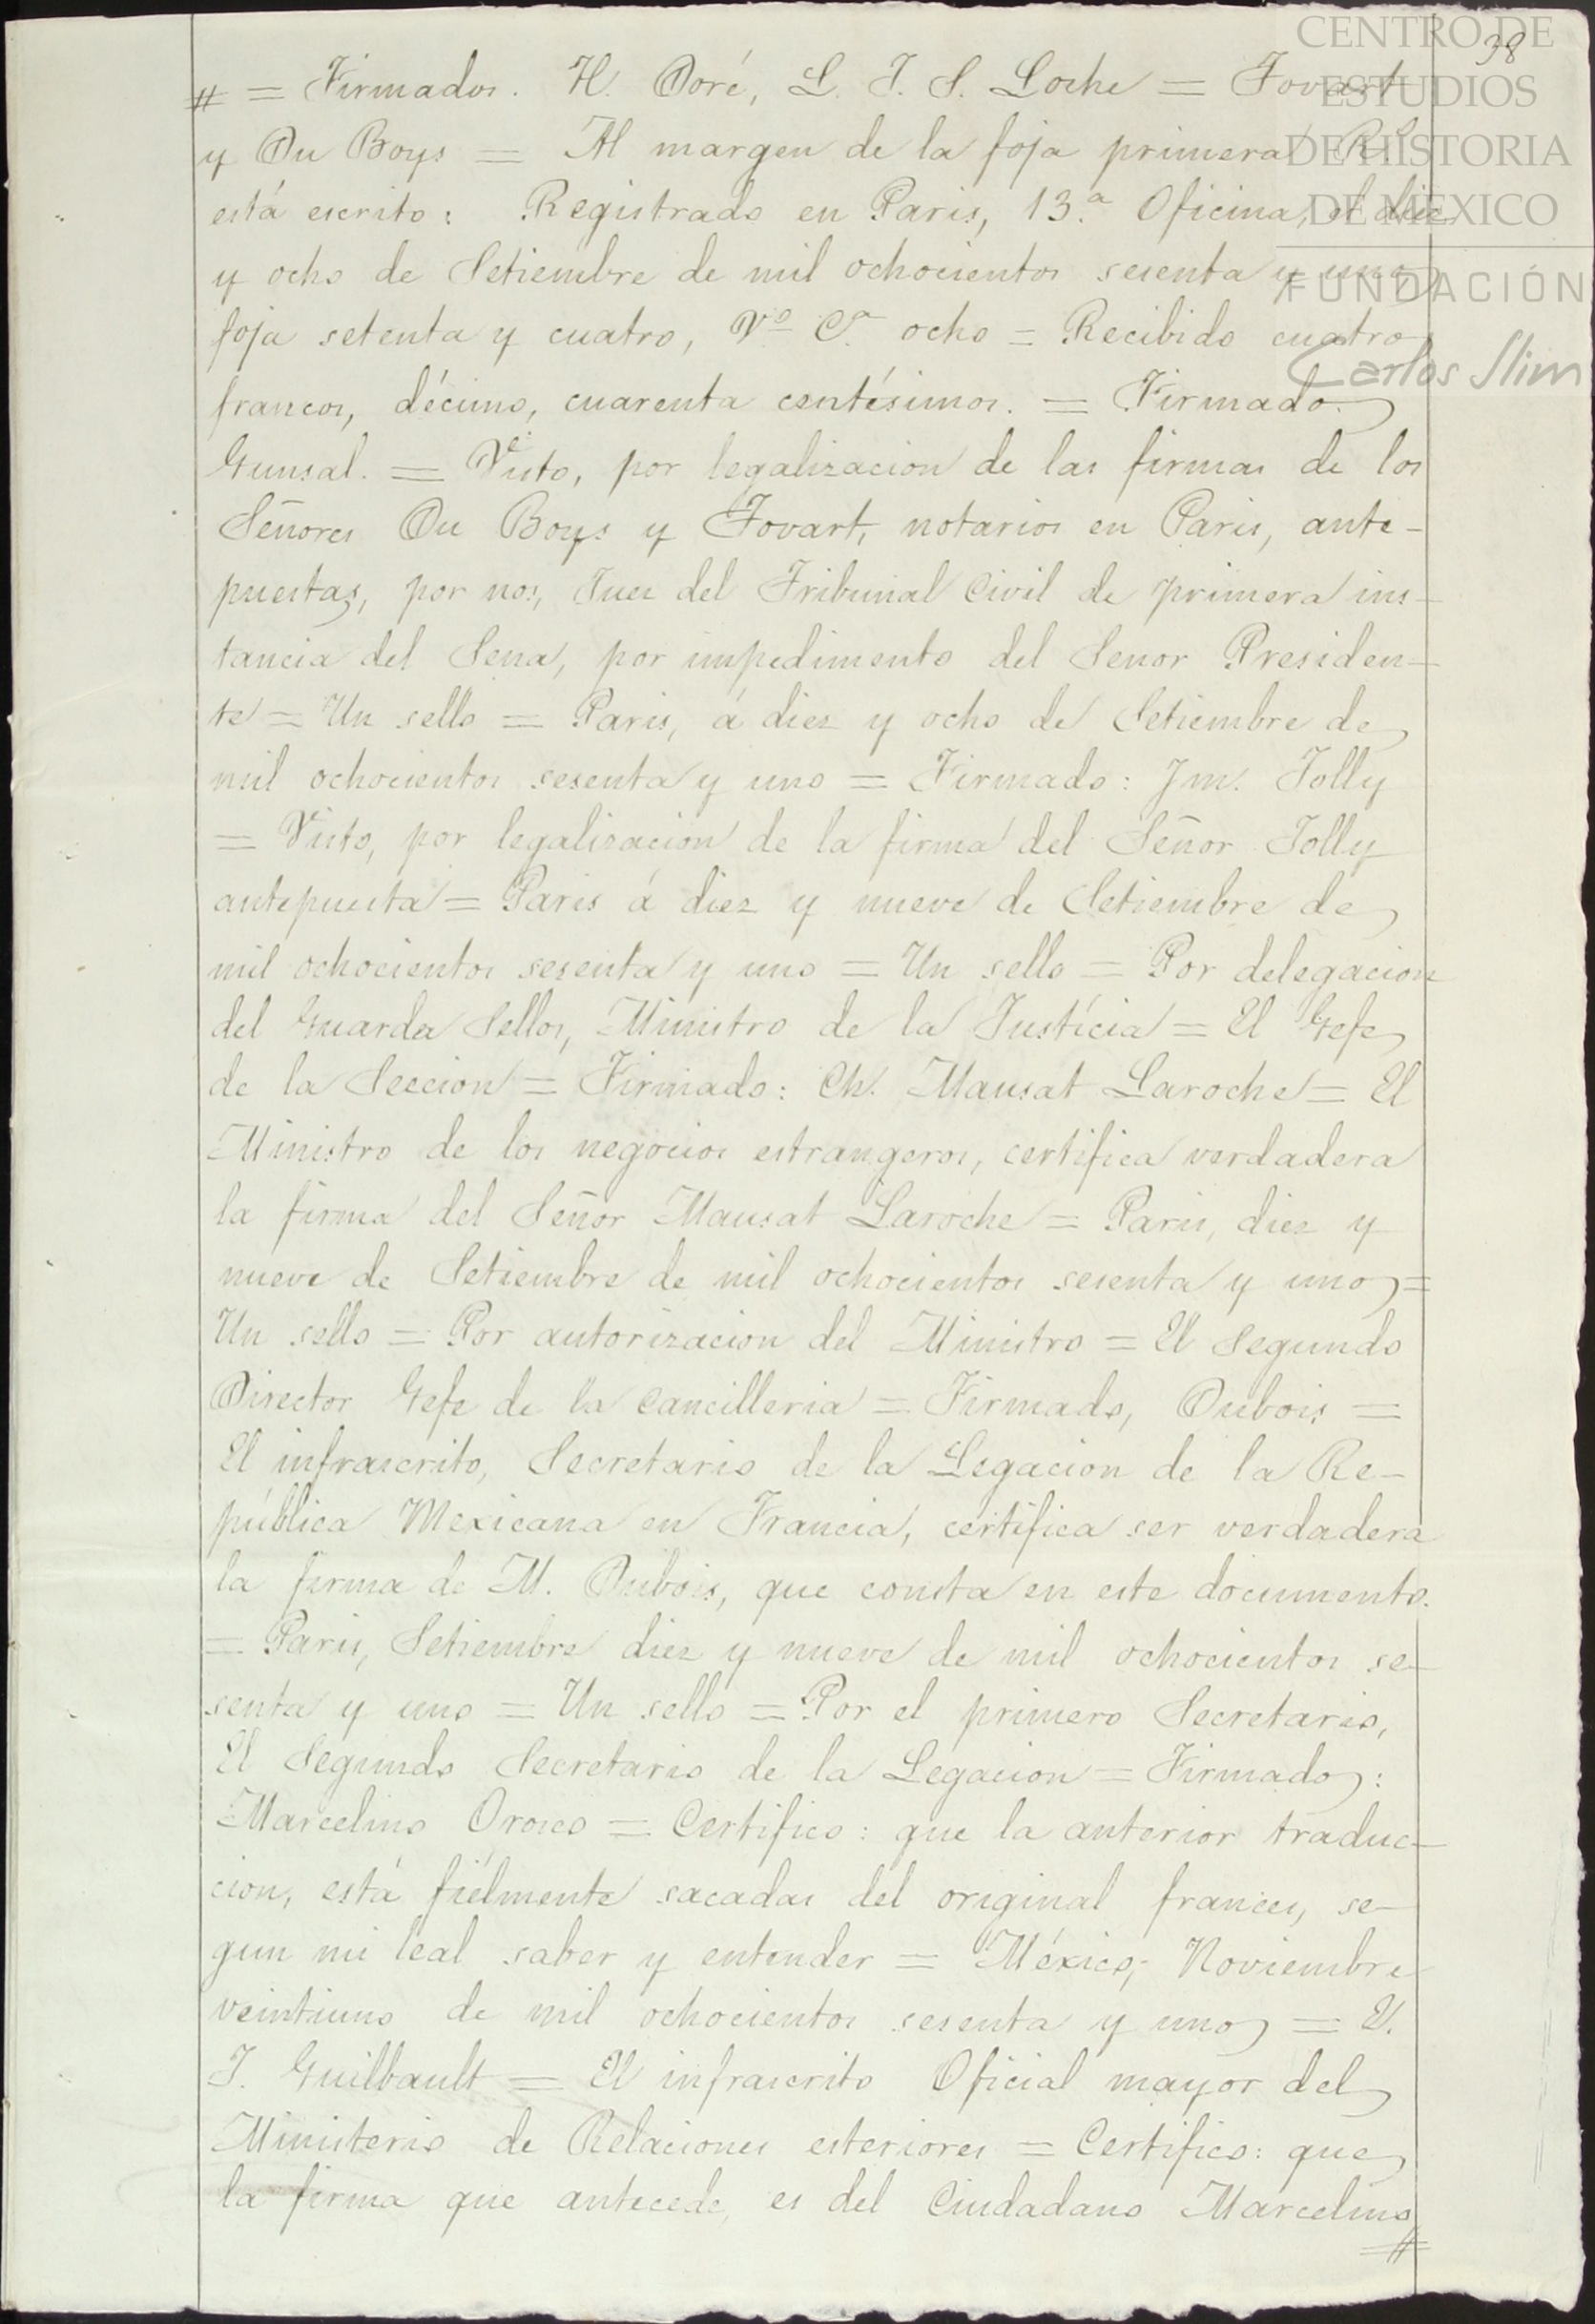 38
CENTRO DE
ESTUDIOS
DE HISTORIA
DE MEXICO
FUNDACIÓN
Carlos Slim
# = Firmados. H. Doré, L. J. S. Loche = Fovart
y Du Boys = Al margen de la foja primera
está escrito: Registrado en Paris, 13.ª Oficina, el diez
y ocho de Setiembre de mil ochocientos sesenta y uno,
foja setenta y cuatro, Vº Cª ocho = Recibido cuatro
francos, décimo, cuarenta centésimos. = Firmado.
Gunsal. = Visto, por legalizacion de las firmas de los
Señores Du Boys y Fovart, notarios en Paris, ante-
puestas, por nos, Juez del Tribunal Civil de primera ins-
tancia del Sena, por impedimento del Senor Presiden-
te = Un sello = Paris, á diez y ocho de Setiembre de
mil ochocientos sesenta y uno = Firmado: Jm. Jolly
= Visto, por legalisacion de la firma del Señor Jolly
antepuesta = Paris á diez y nueve de Setiembre de
mil ochocientos sesenta y uno = Un sello = Por delegacion
del Guarda Sellos, Ministro de la Justícia = El Gefe
de la Seccion = Firmado: Ch. Mausat Laroche = El
Ministro de los negocios estrangeros, certifica verdadera
la firma del Señor Mausat Laroche = Paris, diez y
nueve de Setiembre de mil ochocientos sesenta y uno =
Un sello = Por autorizacion del Ministro = El Segundo
Director Gefe de la Cancilleria = Firmado, Dubois =
El infrascrito, Secretario de la Legacion de la Re-
pública Mexicana en Francia, certifica ser verdadera
la firma de M. Dubois, que consta en este documento.
= Paris, Setiembre diez y nueve de mil ochocientos se-
senta y uno = Un sello = Por el primero Secretario,
El Segundo Secretario de la Legacion = Firmado:
Marcelino Orozco = Certifico: que la anterior traduc-
cion, está fiélmente sacadas del original frances, se-
gun mi leal saber y entender = México, Noviembre
veintiuno de mil ochocientos sesenta y uno = E.
J. Guilbault = El infrascrito Oficial mayor del
Ministerio de Relaciones esteriores = Certifico: que
la firma que antecede, es del Ciudadano Marcelino
#